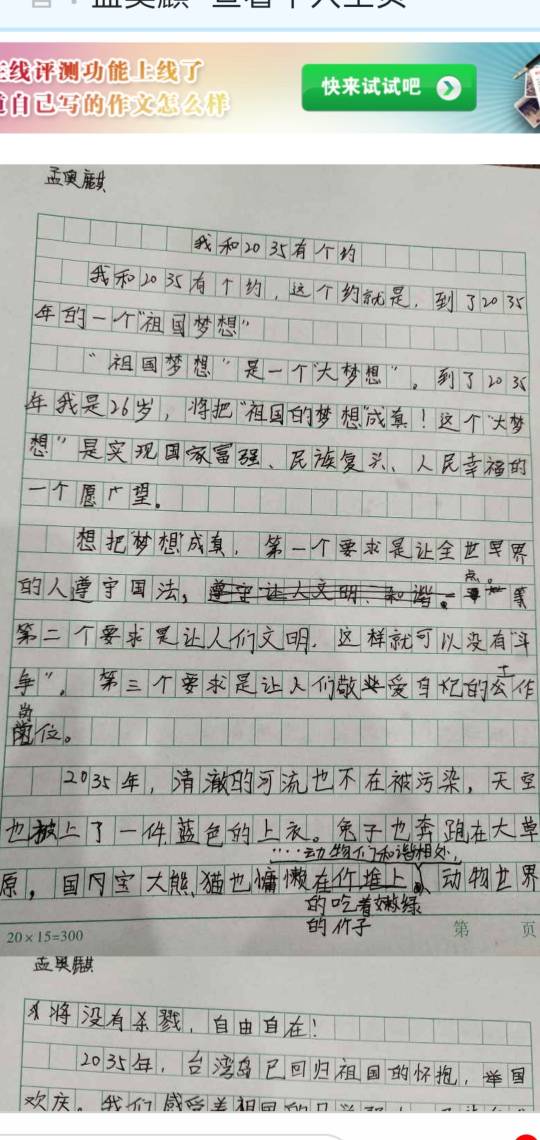 孟奥麒 查看个人主页
线评测功能上线了
自己写的作文怎么样
快来试试吧
孟奥麒
我和2035有个约
我和2035有个约，这个约就是，到了2035
年的一个“祖国梦想”
“祖国梦想”是一个“大梦想”。到了2035
年我是26岁，将把“祖国的梦想”成真！这个“大梦
想”是实现国家富强、民族复兴、人民幸福的
一个愿望。
想把“梦想”成真，第一个要求是让全世界
的人遵守国法，遵守让人文明、和谐。
第二个要求是让人们文明，这样就可以没有“斗
争”。第三个要求是让人们敬业爱自己的工作
岗位。
2035年，清澈的河流也不在被污染，天空
也披上了一件蓝色的上衣。兔子也奔跑在大草
····动物们和谐相处，
原，国宝大熊猫也慵懒在竹堆上，动物世界
的吃着嫩绿
的竹子
20×15=300
第 页
孟奥麒
将没有杀戮，自由自在！
2035年，台湾岛已回归祖国的怀抱，举国
欢庆。我们感受着祖国的